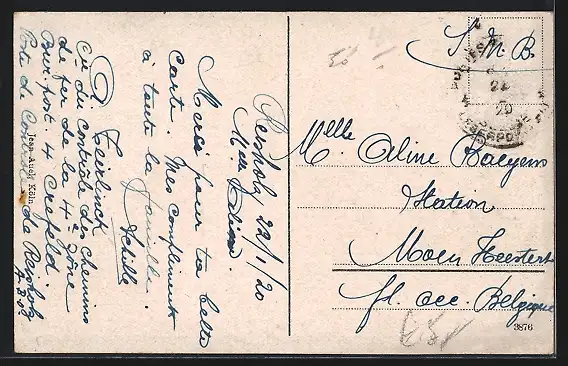 Resholz 22/1/20
Melle Aline.
Merci pour ta belle
carte. Mes compliments
à toute la famille.
Achille
A Teerlinck
Cie du contrôle des chemins
de fer de la 4e zône à
Bur. post. 4 Crefeld.
Poste de Contrôle de Resholz
A.B.O.
Jean Audi Köln
S. M. B.
22
20
Melle Aline Baeyens
Station
Moen Heestert
fl. occ. Belgique
3876